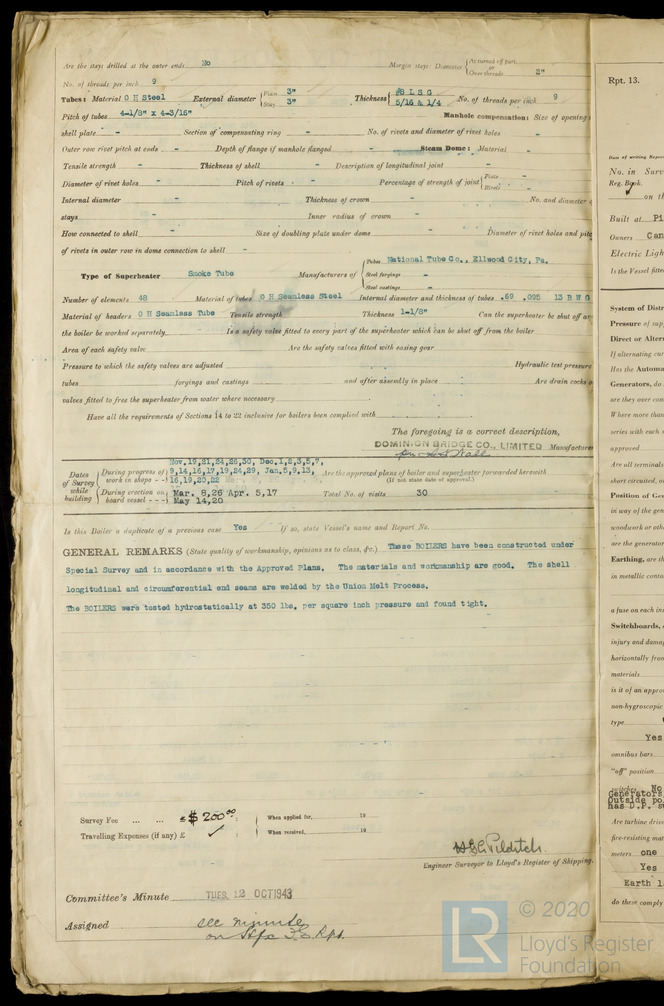 Are the stays drilled at the outer ends No Margin stays: Diameter { At turned off part, or Over threads 2"
No. of threads per inch 9
Tubes: Material O H Steel External diameter { Plain 3" Stay 3" Thickness { #8 L S G 5/16 & 1/4 No. of threads per inch 9
Pitch of tubes 4-1/8" x 4-3/16" Manhole compensation: Size of opening
shell plate - Section of compensating ring - No. of rivets and diameter of rivet holes -
Outer row rivet pitch at ends - Depth of flange if manhole flanged - Steam Dome: Material -
Tensile strength - Thickness of shell - Description of longitudinal joint -
Diameter of rivet holes - Pitch of rivets - Percentage of strength of joint { Plate - Rivets -
Internal diameter - Thickness of crown - No. and diameter
stays - Inner radius of crown -
How connected to shell - Size of doubling plate under dome - Diameter of rivet holes and pitch
of rivets in outer row in dome connection to shell -
Type of Superheater Smoke Tube Manufacturers of { Tubes National Tube Co., Ellwood City, Pa.
Steel forgings -
Steel castings -
Number of elements 48 Material of tubes O H Seamless Steel Internal diameter and thickness of tubes .69 .095 13 B W G
Material of headers O H Seamless Tube Tensile strength Thickness 1-1/8" Can the superheater be shut off
the boiler be worked separately Is a safety valve fitted to every part of the superheater which can be shut off from the boiler
Area of each safety valve Are the safety valves fitted with easing gear
Pressure to which the safety valves are adjusted Hydraulic test pressure
tubes forgings and castings and after assembly in place Are drain cocks
valves fitted to free the superheater from water where necessary
Have all the requirements of Sections 14 to 22 inclusive for boilers been complied with
The foregoing is a correct description,
DOMINION BRIDGE CO., LIMITED Manufacturer
Dates of Survey while building { During progress of work in shops - - Nov.19,21,24,26,30, Dec.1,2,3,5,7, 9,14,16,17,19,24,29, Jan.5,9,13, 16,19,20,22 Are the approved plans of boiler and superheater forwarded herewith
(If not state date of approval.)
During erection on board vessel - - - Mar. 8,26 Apr. 5,17 May 14,20 Total No. of visits 30
Is this Boiler a duplicate of a previous case Yes If so, state Vessel's name and Report No.
GENERAL REMARKS (State quality of workmanship, opinions as to class, &c.) These BOILERS have been constructed under
Special Survey and in accordance with the Approved Plans. The materials and workmanship are good. The shell
longitudinal and circumferential end seams are welded by the Union Melt Process.
The BOILERS were tested hydrostatically at 350 lbs. per square inch pressure and found tight.
Survey Fee ... ... £ $ 200.00 : When applied for, 19
Travelling Expenses (if any) £ ✓ : When received, 19
Engineer Surveyor to Lloyd's Register of Shipping.
Committee's Minute TUES. 12 OCT 1943
Assigned see minute
on Rpt.
Rpt. 13.
Date of writing Report
No. in Surv
Reg. Book.
on th
Built at Pi
Owners Can
Electric Ligh
Is the Vessel fitte
System of Distr
Pressure of sup
Direct or Alter
If alternating cur
Has the Automa
Generators, do
are they over com
Where more than
series with each
approved
Are all terminals
short circuited, o
Position of Ge
in way of the gen
woodwork or othe
are the generator
Earthing, are th
in metallic conta
a fuse on each ins
Switchboards,
injury and damag
horizontally from
materials
is it of an approv
non-hygroscopic
type
Yes
omnibus bars
"off" position
switches No
Generators
Outside po
has D.P. s
Are turbine drive
fire-resisting mat
meters one
Yes
Earth l
do these comply
LR © 2020
Lloyd's Register
Foundation